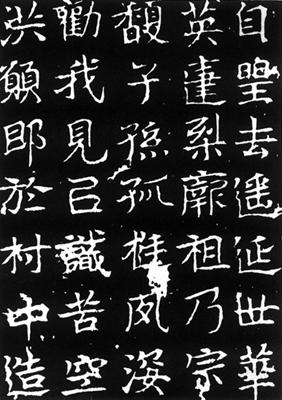 自望去遥延世華
英建梨廓祖乃宗
馥子孫孤桂夙姿
勸我見已識苦空
洪願即於村中造